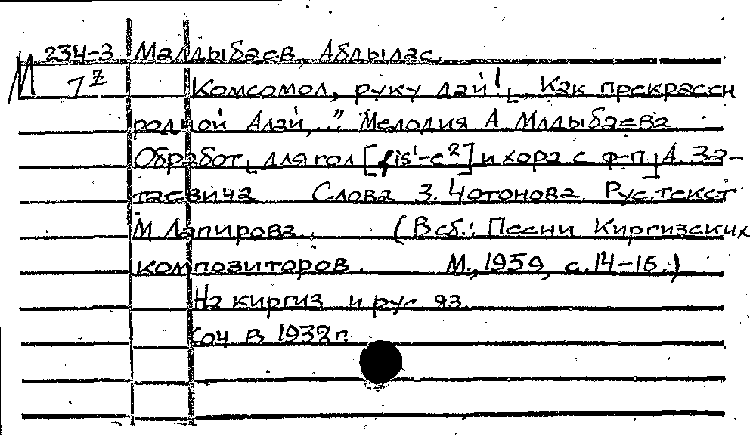 234-3 Малдыбаев, Абдылас.
М 7z Комсомол, руку дай! „Как прекрасен
родной Алай,..." Мелодия А. Млдыбаева
Обработ. для гол [fis¹-c²] и хора с ф-п. А. За-
таевича Слова З. Чотонова Рус. текст
М Лапирова. (В сб.: Песни Киргизских
композиторов. М., 1959, с. 14-16.)
На киргиз и рус яз.
Соч в 1938 г.